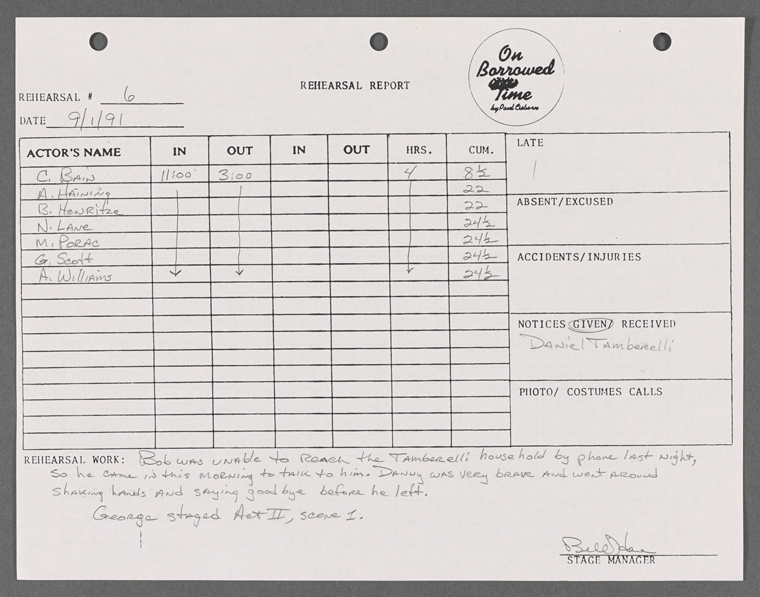 On
Borrowed
Time
by Paul Osborn
REHEARSAL REPORT
REHEARSAL # 6
DATE 9/1/91
ACTOR'S NAME IN OUT IN OUT HRS. CUM.
C. BAIN 11:00 3:00 4 8½
A. HAINING 22
B. HENRITZE 22
N. LANE 24½
M. PORAC 24½
G. Scott 24½
A. Williams 24½
LATE
ABSENT/EXCUSED
ACCIDENTS/INJURIES
NOTICES GIVEN/ RECEIVED
DANIEL TAMBERELLI
PHOTO/ COSTUMES CALLS
REHEARSAL WORK: Bob was unable to reach the Tamberelli household by phone last night,
so he came in this morning to talk to him. Danny was very brave and went around
shaking hands and saying goodbye before he left.
George staged Act II, scene 1.
STAGE MANAGER